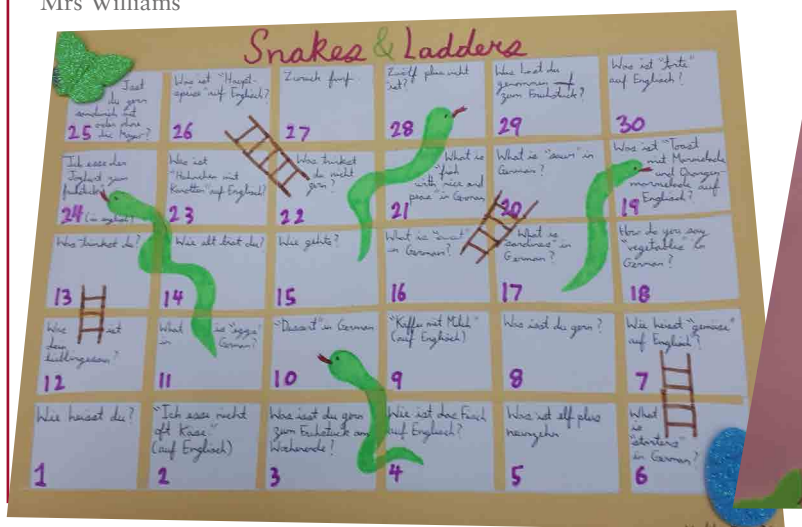 Mrs Williams
Snakes & Ladders
25
Was ist "Haupt-
speise" auf Englisch?
26
Zurück fünf
27
Zwölf plus acht
ist?
28
Was hast du
genommen
zum Frühstück?
29
Was ist "torte"
auf Englisch?
30
"Ich esse den
Joghurt zum
24
Was ist
"Hähnchen mit
Karotten" auf Englisch?
23
Was trinkst
du nicht
gern?
22
What is
"fish
with rice and
peas in German
21
What is "sour" in
German?
20
Was ist "Toast
mit Marmelade
und Orangen-
marmelade auf
Englisch?
19
Was trinkst du?
13
Wie alt bist du?
14
Wie gehts?
15
What is "sweet"
in German?
16
What is
"sardines" in
German?
17
How do you say
"vegetables" in
German?
18
Was ist
dein
12
What is "eggs"
in German?
11
"Dessert" in German
10
"Kaffee mit Milch"
(auf Englisch)
9
Was isst du gern?
8
Wie heisst "gemüse"
auf Englisch?
7
Wie heisst du?
1
"Ich esse nicht
oft Käse."
(auf Englisch)
2
Was isst du gern
zum Frühstuck am
Wochenende?
3
Wie ist das Fisch
auf Englisch?
4
Was ist elf plus
neunzehn
5
What
is
"starters"
in German?
6